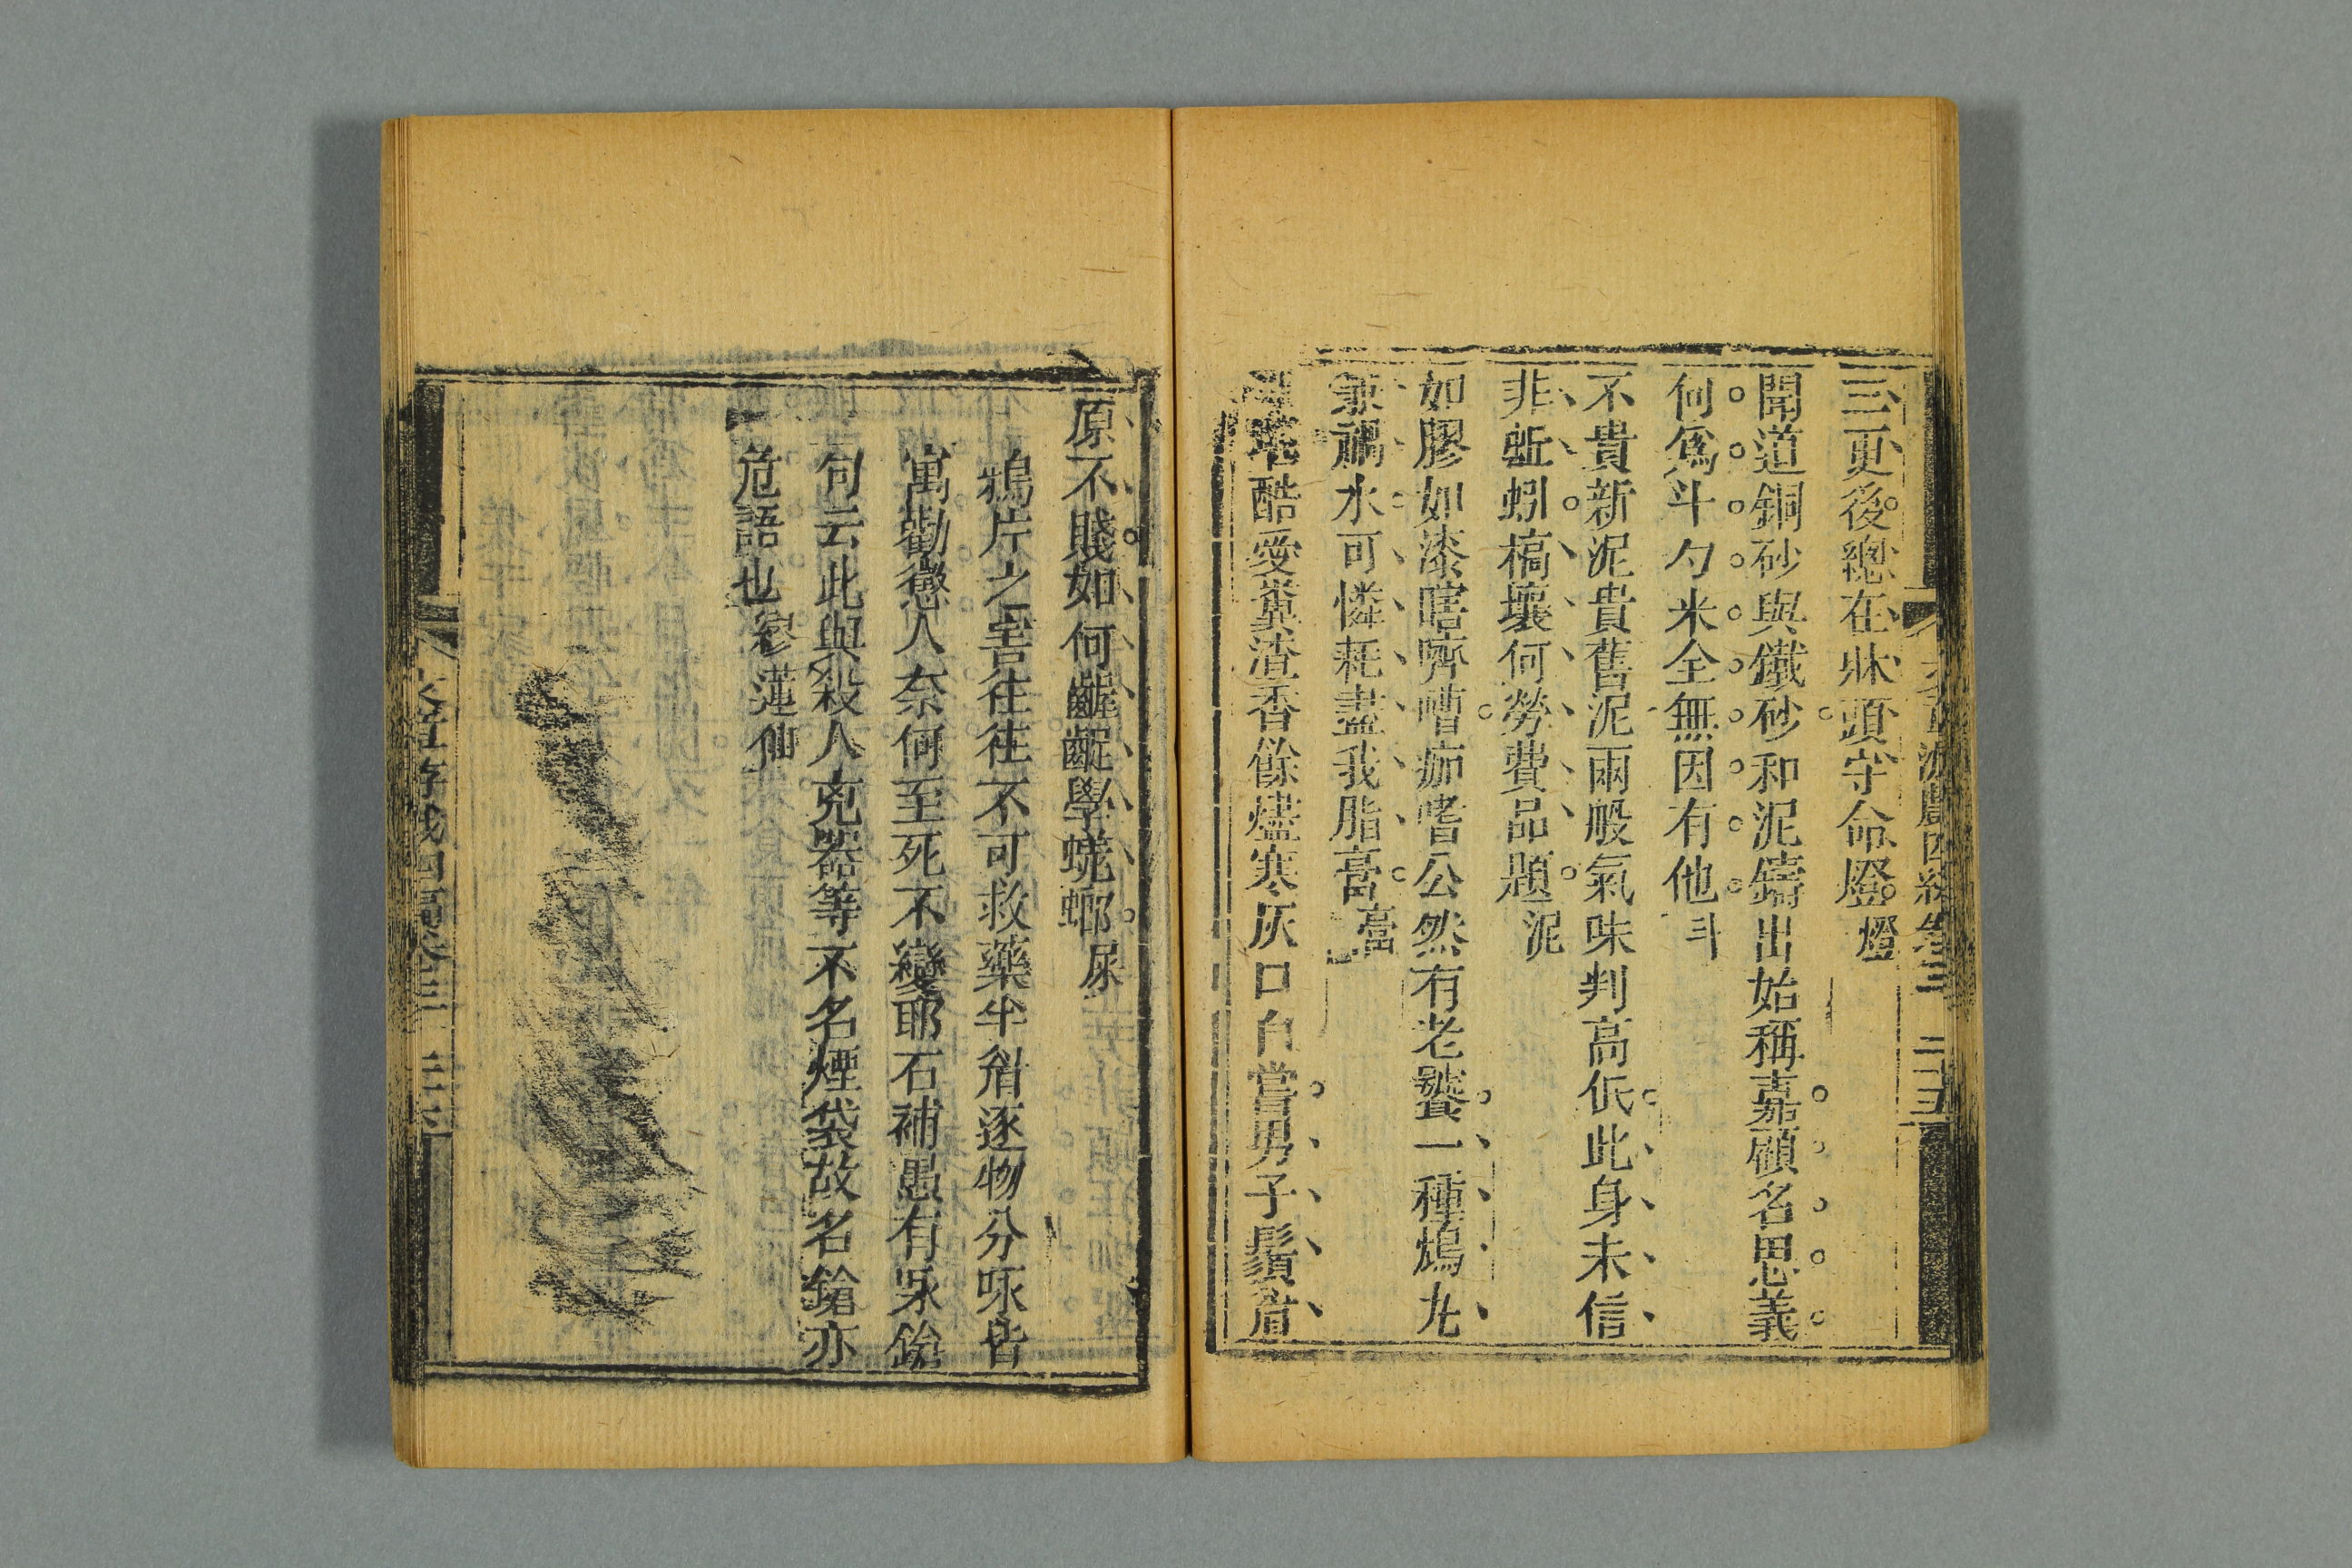 三更後總在牀頭守命燈 燈
聞道銅砂與鐵砂和泥鑄出始稱嘉顧名思義
何爲斗勺米全無因有他 斗
不貴新泥貴舊泥兩般氣味判高低此身未信
非蚯蚓槁壤何勞費品題 泥
如膠如漆瞎嚌嘈痂嗜公然有老饕一種鴆九
水可憐耗盡我脂膏 膏
酷愛糞渣香餘燼寒灰口自嘗男子鬚眉
三 二十五
原不賤如何齷齪學蜣螂 屎
鴉片之害往往不可救藥半眉逐物分咏皆
寓勸懲人奈何至死不變耶石補愚有咏鎗
句云此與殺人兇器等不名煙袋故名鎗亦
危語也 寥蓮仙